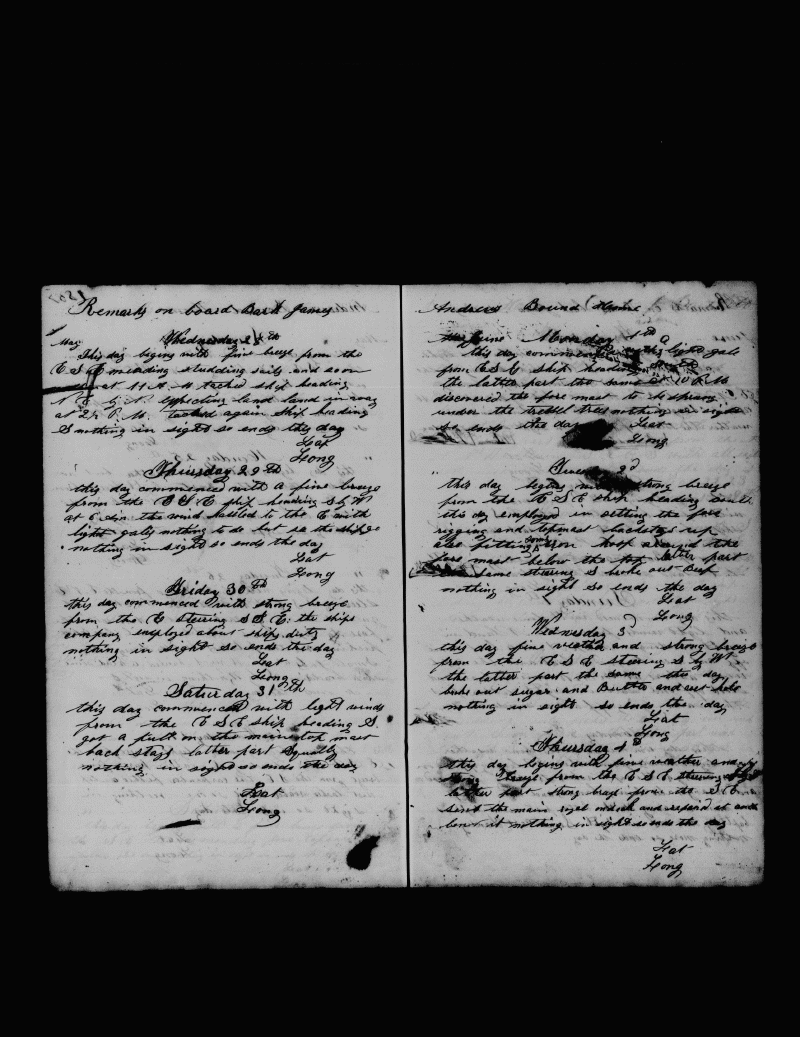 Remarks on board Bark James
May Wednesday 28th
This day begins with fine breeze from the
E S E meading studding sails and soon
at 11 A. M tacked ship heading
N E by N expecting land land in way
at 2½ P. M. tacked again ship heading
S nothing in sight so ends this day
Lat
Long
Thursday 29th
this day commenced with a fine breeze
from the E S E ship heading S by W
at 6 A.m the wind hauled to the E with
light gales nothing to do but se the ship go
nothing in sight so ends the day
Lat
Long
Friday 30th
this day commenced with strong breeze
from the E steering S S E. the ships
company employed about ships duty
nothing in sight so ends the day
Lat
Long
Saturday 31th
this day commenced with light winds
from the E S E ship heading S.
got a pull on the maintop mast
back stays latter part Squally
nothing in sight so ends the day
Lat
Long
Andrews Bound Home
June Monday 1
this day light gale
from E S E ship heading
the latter part the same at 10 P. M
discovered the fore mast to be sprung
under the tressel trees nothing in sight
so ends the day Lat
Long
2d
this day begins strong breeze
from the E S E ship heading South
this day employed in setting the fore
rigging and topmast backstays up
also fitting some iron hoop around the
fore mast below the top latter part
same steering S broke out Beef
nothing in sight so ends the day
Lat
Long
Wednesday 3
this day fine weather and strong breeze
from the E S E steering S by W.
the latter part the same this day
broke out sugar and Butter and
nothing in sight so ends the day
Lat
Long
Thursday 4
this day begins with fine weather and
strong breeze from the E S E steering
latter part strong breeze from the S E
the main royal and repaird it and
it nothing in sight so ends the day
Lat
Long